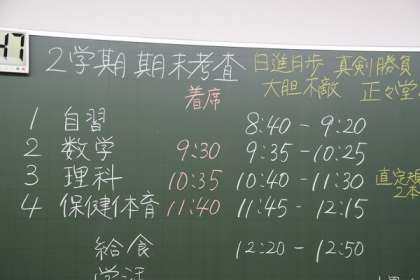 2学期 期末考査 日進月歩 真剣勝負
大胆不敵 正々堂
着席
1 自習 8:40 - 9:20
2 数学 9:30 9:35 - 10:25
3 理科 10:35 10:40 - 11:30 直定規
2本
4 保健体育 11:40 11:45 - 12:15
給食 12:20 - 12:50
学活